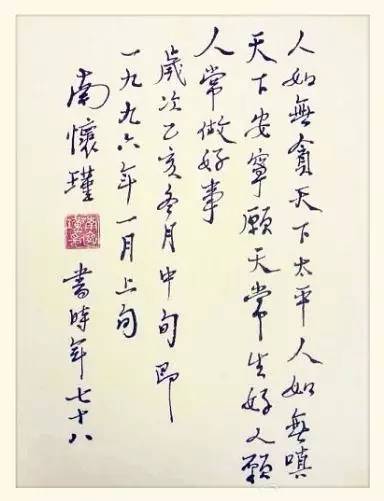 人如無貪天下太平人如無嗔
天下安寧願天常生好人願
人常做好事
歲次乙亥冬月中旬即
一九九六年一月上旬
南懷瑾
書時年七十八